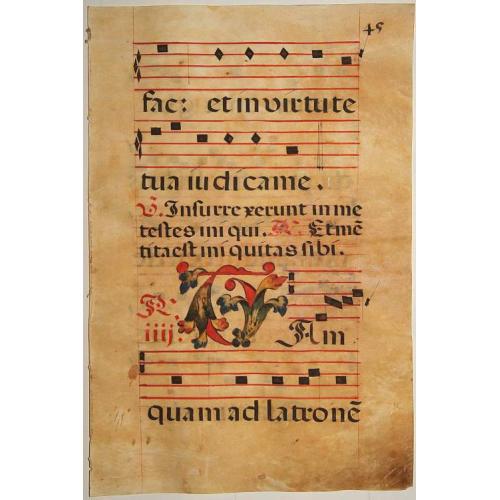 45
fac: et in virtute
tua iudica me.
V. Insurrexerunt in me
testes iniqui. R. Et mē
tita est iniquitas sibi.
R. iiij: T Am
quam ad latronē